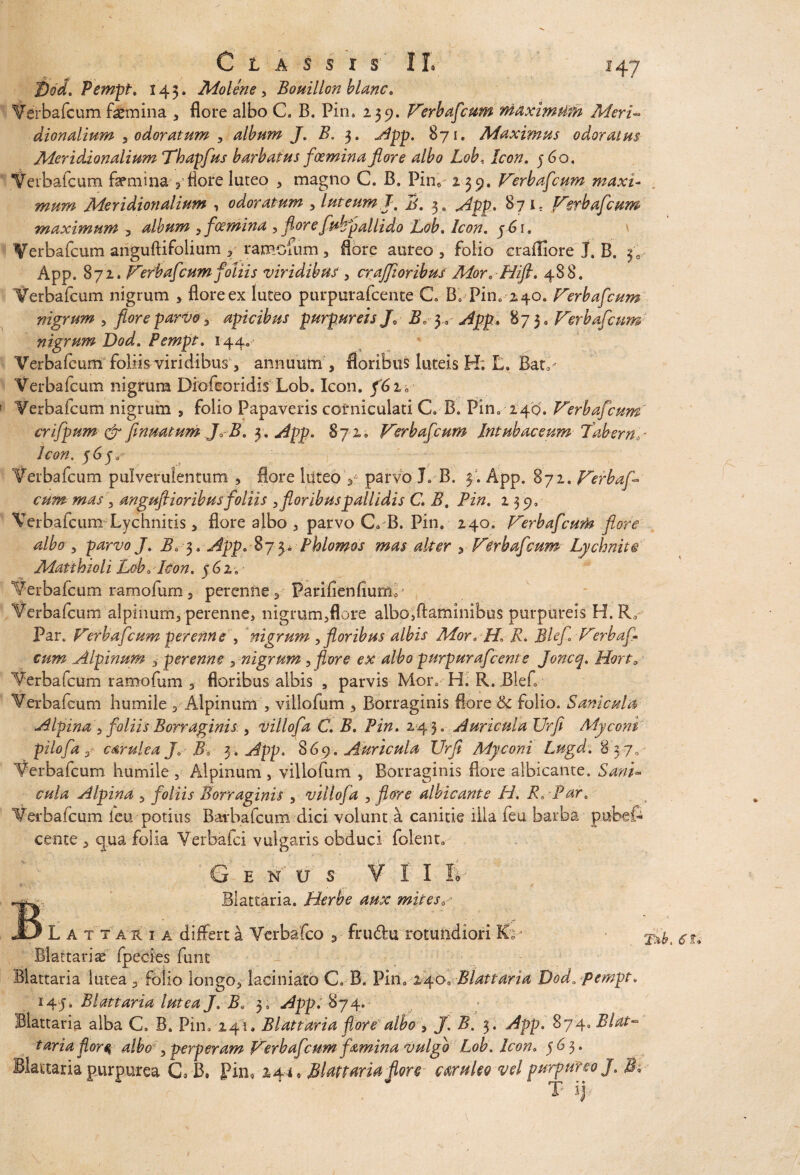 CLASSIS II. 147
Dod. Pempt. 143. Molène, Bouillon blanc.
Verbascum fæmina, flore albo C. B. Pin. 239. Verbascum maximum Meri-
dionalium, odoratum, album J. B. 3. App. 871. Maximus odoratus
Meridionalium Thapsus barbatus fœmina flore albo Lob. Icon. 560.
Verbascum fæmina, flore luteo, magno C. B. Pin. 239. Verbascum maxi-
mum Meridionalium, odoratum, luteum J. B. 3. App. 871. Verbascum
maximum, album, fœmina, flore subpallido Lob. Icon. 561.
Verbascum angustifolium, ramosum, flore aureo, folio crassiore J. B. 3.
App. 872. Verbascum foliis viridibus, crassioribus Mor. Hist. 488.
Verbascum nigrum, flore ex luteo purpurascente C. B. Pin. 240. Verbascum
nigrum, flore parvo, apicibus purpureis J. B. 3. App. 873. Verbascum
nigrum Dod. Pempt. 144.
Verbascum foliis viridibus, annuum, floribus luteis H. L. Bat.
Verbascum nigrum Dioscoridis Lob. Icon. 562.
Verbascum nigrum, folio Papaveris corniculati C. B. Pin. 240. Verbascum
crispum & sinuatum J. B. 3. App. 872. Verbascum Intubaceum Tabern.
Icon. 565.
Verbascum pulverulentum, flore luteo, parvo J. B. 3. App. 872. Verbas-
cum mas, angustioribus foliis, floribus pallidis C. B. Pin. 239.
Verbascum Lychnitis, flore albo, parvo C. B. Pin. 240. Verbascum flore
albo, parvo J. B. 3. App. 873. Phlomos mas alter, Verbascum Lychnite
Matthioli Lob. Icon. 562.
Verbascum ramosum, perenne, Parisiensium.
Verbascum alpinum, perenne, nigrum, flore albo, staminibus purpureis H. R.
Par. Verbascum perenne, nigrum, floribus albis Mor. H. R. Bles. Verbas-
cum Alpinum, perenne, nigrum, flore ex albo purpurascente Joncq. Hort.
Verbascum ramosum, floribus albis, parvis Mor. H. R. Bles.
Verbascum humile, Alpinum, villosum, Borraginis flore & folio. Sanicula
Alpina, foliis Borraginis, villosa C. B. Pin. 243. Auricula Ursi Myconi
pilosa, cærulea J. B. 3. App. 869. Auricula Ursi Myconi Lugd. 837.
Verbascum humile, Alpinum, villosum, Borraginis flore albicante. Sani-
cula Alpina, foliis Borraginis, villosa, flore albicante H. R. Par.
Verbascum seu potius Barbascum dici volunt à canitie illa seu barba pubes-
cente, qua folia Verbasci vulgaris obduci solent.
GENUS VIII.
Blattaria. Herbe aux mites.
BLATTARIA differt à Verbasco, fructu rotundiori K. Tab. 61.
Blattariæ species sunt
Blattaria lutea, folio longo, laciniato C. B. Pin. 240. Blattaria Dod. pempt.
145. Blattaria lutea J. B. 3. App. 874.
Blattaria alba C. B. Pin. 241. Blattaria flore albo, J. B. 3. App. 874. Blat-
taria flore albo, perperam Verbascum fæmina vulgò Lob. Icon. 563.
Blattaria purpurea C. B. Pin. 241. Blattaria flore cæruleo vel purpureo J. B.
T ij